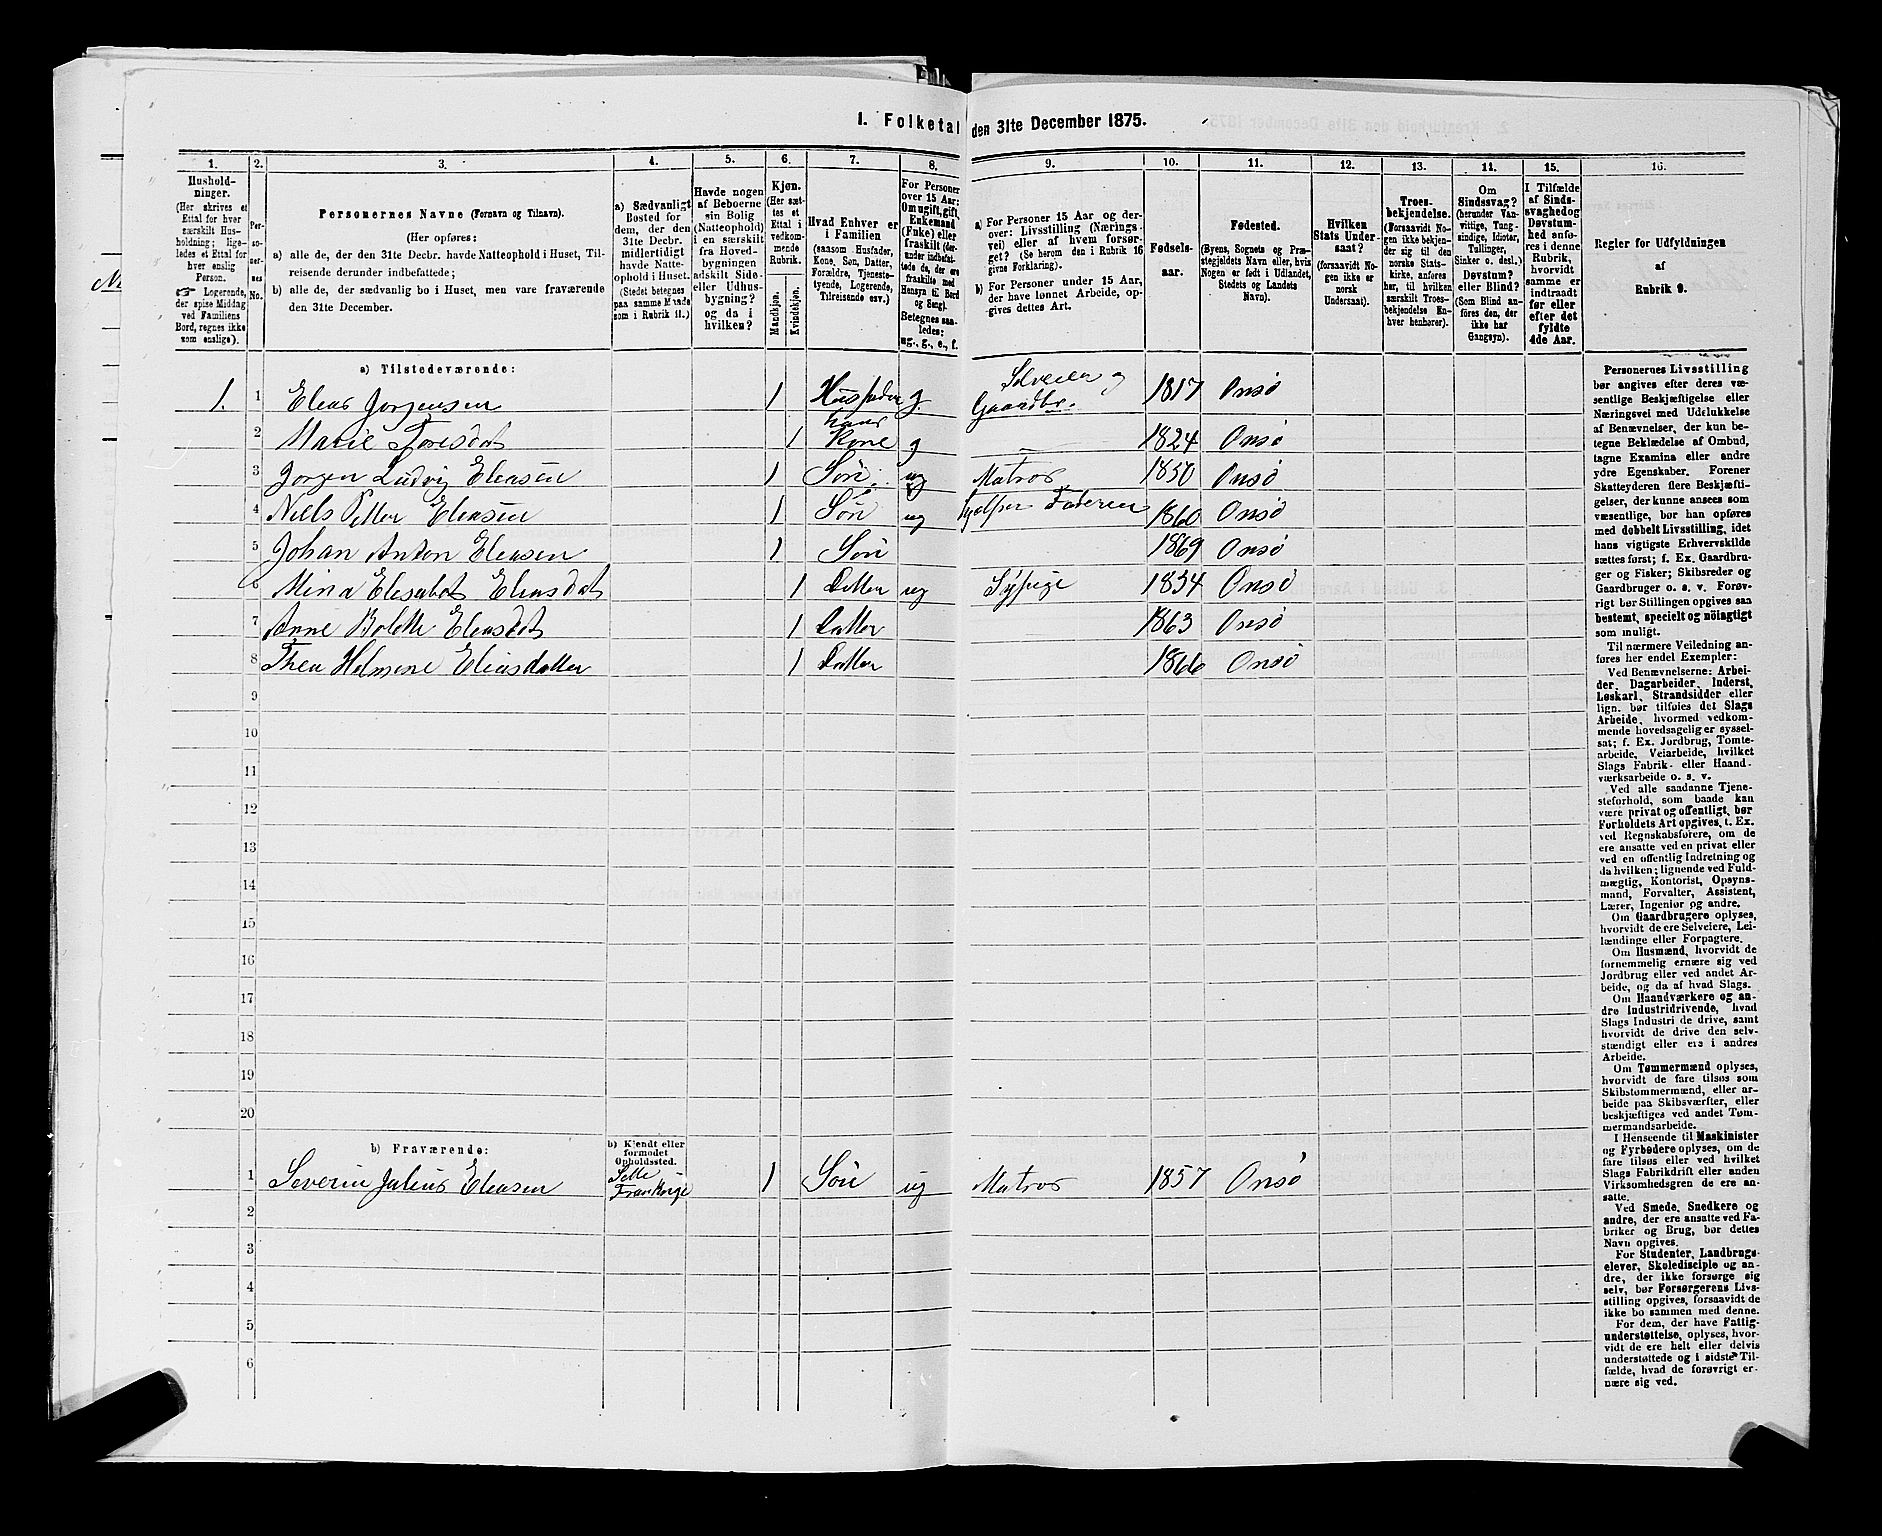 1. Folketal den 31te December 1875.
1. 2. 3. 4. 5. 6. 7. 8. 9. 10. 11. 12. 13. 14. 15. 16.
Hushold-
ninger.
(Her skrives et
Ettal for hver
særskilt Hus-
holdning; lige-
ledes et Ettal for
hver enslig
Person.
☞ Logerende,
der spise Middag
ved Familiens
Bord, regnes ikke
som enslige).
Per-
so-
ner-
nes
No.
Personernes Navne (Fornavn og Tilnavn).
(Her opføres:
a) alle de, der den 31te Decbr. havde Natteophold i Huset, Til-
reisende derunder indbefattede;
b) alle de, der sædvanlig bo i Huset, men vare fraværende
den 31te December.
a) Sædvanligt
Bosted for
dem, der den
31te Decbr.
midlertidigt
havde Natte-
ophold i Huset.
(Stedet betegnes
paa samme Maade
som i Rubrik 11.)
Havde nogen
af Beboerne
sin Bolig
(Natteophold)
i en særskilt
fra Hoved-
bygningen
adskilt Side-
eller Udhus-
bygning?
og da i
hvilken?
Kjøn.
(Her sæt-
tes et
Ettal i
vedkom-
mende
Rubrik.
Mandkjøn.
Kvindekjøn.
Hvad Enhver er
i Familien
(saasom Husfader,
Kone, Søn, Datter,
Forældre, Tjeneste-
tyende, Logerende,
Tilreisende osv.)
For Personer
over 15 Aar:
Om ugift, gift,
Enkemand
(Enke) eller
fraskilt (der-
under indbefat-
tede de, der ere
fraskilte med
Hensyn til Bord
og Seng).
Betegnes saa-
ledes:
ug., g., e., f.
a) For Personer 15 Aar og der-
over: Livsstilling (Nærings-
vei) eller af hvem forsør-
get? (Se herom den i Rubrik 16
givne Forklaring).
b) For Personer under 15 Aar,
der have lønnet Arbeide, op-
gives dettes Art.
Fødsels-
aar.
Fødested.
(Byens, Sognets og Præ-
stegjeldets Navn eller, hvis
Nogen er født i Udlandet,
Stedets og Landets
Navn).
Hvilken
Stats Under-
saat?
(forsaavidt No-
gen ikke er
norsk
Undersaat).
Troes-
bekjendelse.
(Forsaavidt No-
gen ikke bekjen-
der sig til den
norske Stats-
kirke, anføres
her, til hvilken
særskilt Troes-
bekjendelse En-
hver henhører).
Om
Sindssvag?
(herunder Van-
vittige, Tung-
sindige, Idioter,
Tullinger,
Sinker o. desl.)
Døvstum?
eller Blind?
(Som Blind an-
føres den, der
ikke har
Gangsyn).
I Tilfælde
af Sinds-
svaghed og
Døvstum-
hed anfø-
res i denne
Rubrik,
hvorvidt
samme er
indtraadt
før eller
efter det
fyldte
4de Aar.
Regler for Udfyldningen
af
Rubrik 9.
a) Tilstedeværende:
1. 1 Elias Jorgensen 1 Husfader g. Selveier og Gaardbr. 1817 Onsö
2 Marie Toresdat 1 hans Kone g 1824 Onsö
3 Jorgen Ludvig Eliasen 1 Sön ug Matros 1850 Onsö
4 Niels Petter Eliasen 1 Sön ug hjelper Faderen 1860 Onsö
5 Johan Anton Eliasen 1 Sön 1869 Onsö
6 Mina Elisabet Eliasdat 1 Datter ug Sypige 1854 Onsö
7 Anne Bolette Eliasdat 1 Datter 1863 Onsö
8 Thea Helmine Eliasdatter 1 Datter 1866 Onsö
9
10
11
12
13
14
15
16
17
18
19
20
b) Fraværende:
b) Kjendt eller
formodet
Opholdssted.
1 Severin Julius Eliasen Sette Frankrige 1 Sön ug Matros 1857 Onsö
2
3
4
5
6
Personernes Livsstilling
bør angives efter deres væ-
sentlige Beskjæftigelse eller
Næringsvei med Udelukkelse
af Benævnelser, der kun be-
tegne Beklædelse af Ombud,
tagne Examina eller andre
ydre Egenskaber. Forener
Skatteyderen flere Beskjæfti-
gelser, der kunne ansees som
væsentlige, bør han opføres
med dobbelt Livsstilling, idet
hans vigtigste Erhvervskilde
sættes først; f. Ex. Gaardbru-
ger og Fisker; Skibsreder og
Gaardbruger o. s. v. Forøv-
rigt bør Stillingen opgives saa
bestemt, specielt og nöiagtigt
som muligt.
Til nærmere Veiledning an-
føres her endel Exempler:
Ved Benævnelserne: Arbei-
der, Dagarbeider, Inderst,
Løskarl, Strandsidder eller
lign. bør tilføies det Slags
Arbeide, hvormed vedkom-
mende hovedsagelig er syssel-
sat; f. Ex. Jordbrug, Tomte-
arbeide, Veiarbeide, hvilket
Slags Fabrik- eller Haand-
værksarbeide o. s. v.
Ved alle saadanne Tjene-
steforhold, som baade kan
være privat og offentligt, bør
Forholdets Art opgives, t. Ex.
ved Regnskabsførere, om de
ere ansatte ved en privat eller
ved en offentlig Indretning og
da hvilken; lignende ved Fuld-
mægtig, Kontorist, Opsyns-
mand, Forvalter, Assistent,
Lærer, Ingeniør og andre.
Om Gaardbrugere oplyses,
hvorvidt de ere Selveiere, Lei-
lændinge eller Forpagtere.
Om Husmænd, hvorvidt de
fornemmelig ernære sig ved
Jordbrug eller ved andet Ar-
beide, og da af hvad Slags.
Om Haandværkere og an-
dre Industridrivende, hvad
Slags Industri de drive, samt
hvorvidt de drive den selv-
stændigt eller ere i andres
Arbeide.
Om Tømmermænd oplyses,
hvorvidt de fare tilsøs som
Skibstømmermænd, eller ar-
beide paa Skibsværfter, eller
beskjæftiges ved andet Tøm-
mermandsarbeide.
I Henseende til Maskinister
og Fyrbødere oplyses, om de
fare tilsøs eller ved hvilket
Slags Fabrikdrift eller anden
Virksomhedsgren de ere an-
satte.
Ved Smede, Snedkere og
andre, der ere ansatte ved Fa-
briker og Brug, bør dettes
Navn opgives.
For Studenter, Landbrugs-
elever, Skoledisciple og an-
dre, der ikke forsørge sig
selv, bør Forsørgerens Livs-
stilling opgives, forsaavidt de
ikke bo sammen med denne.
For dem, der have Fattig-
understøttelse, oplyses, hvor-
vidt de ere helt eller delvis
understøttede og i sidste Til-
fælde, hvad de forøvrigt er-
nære sig ved.